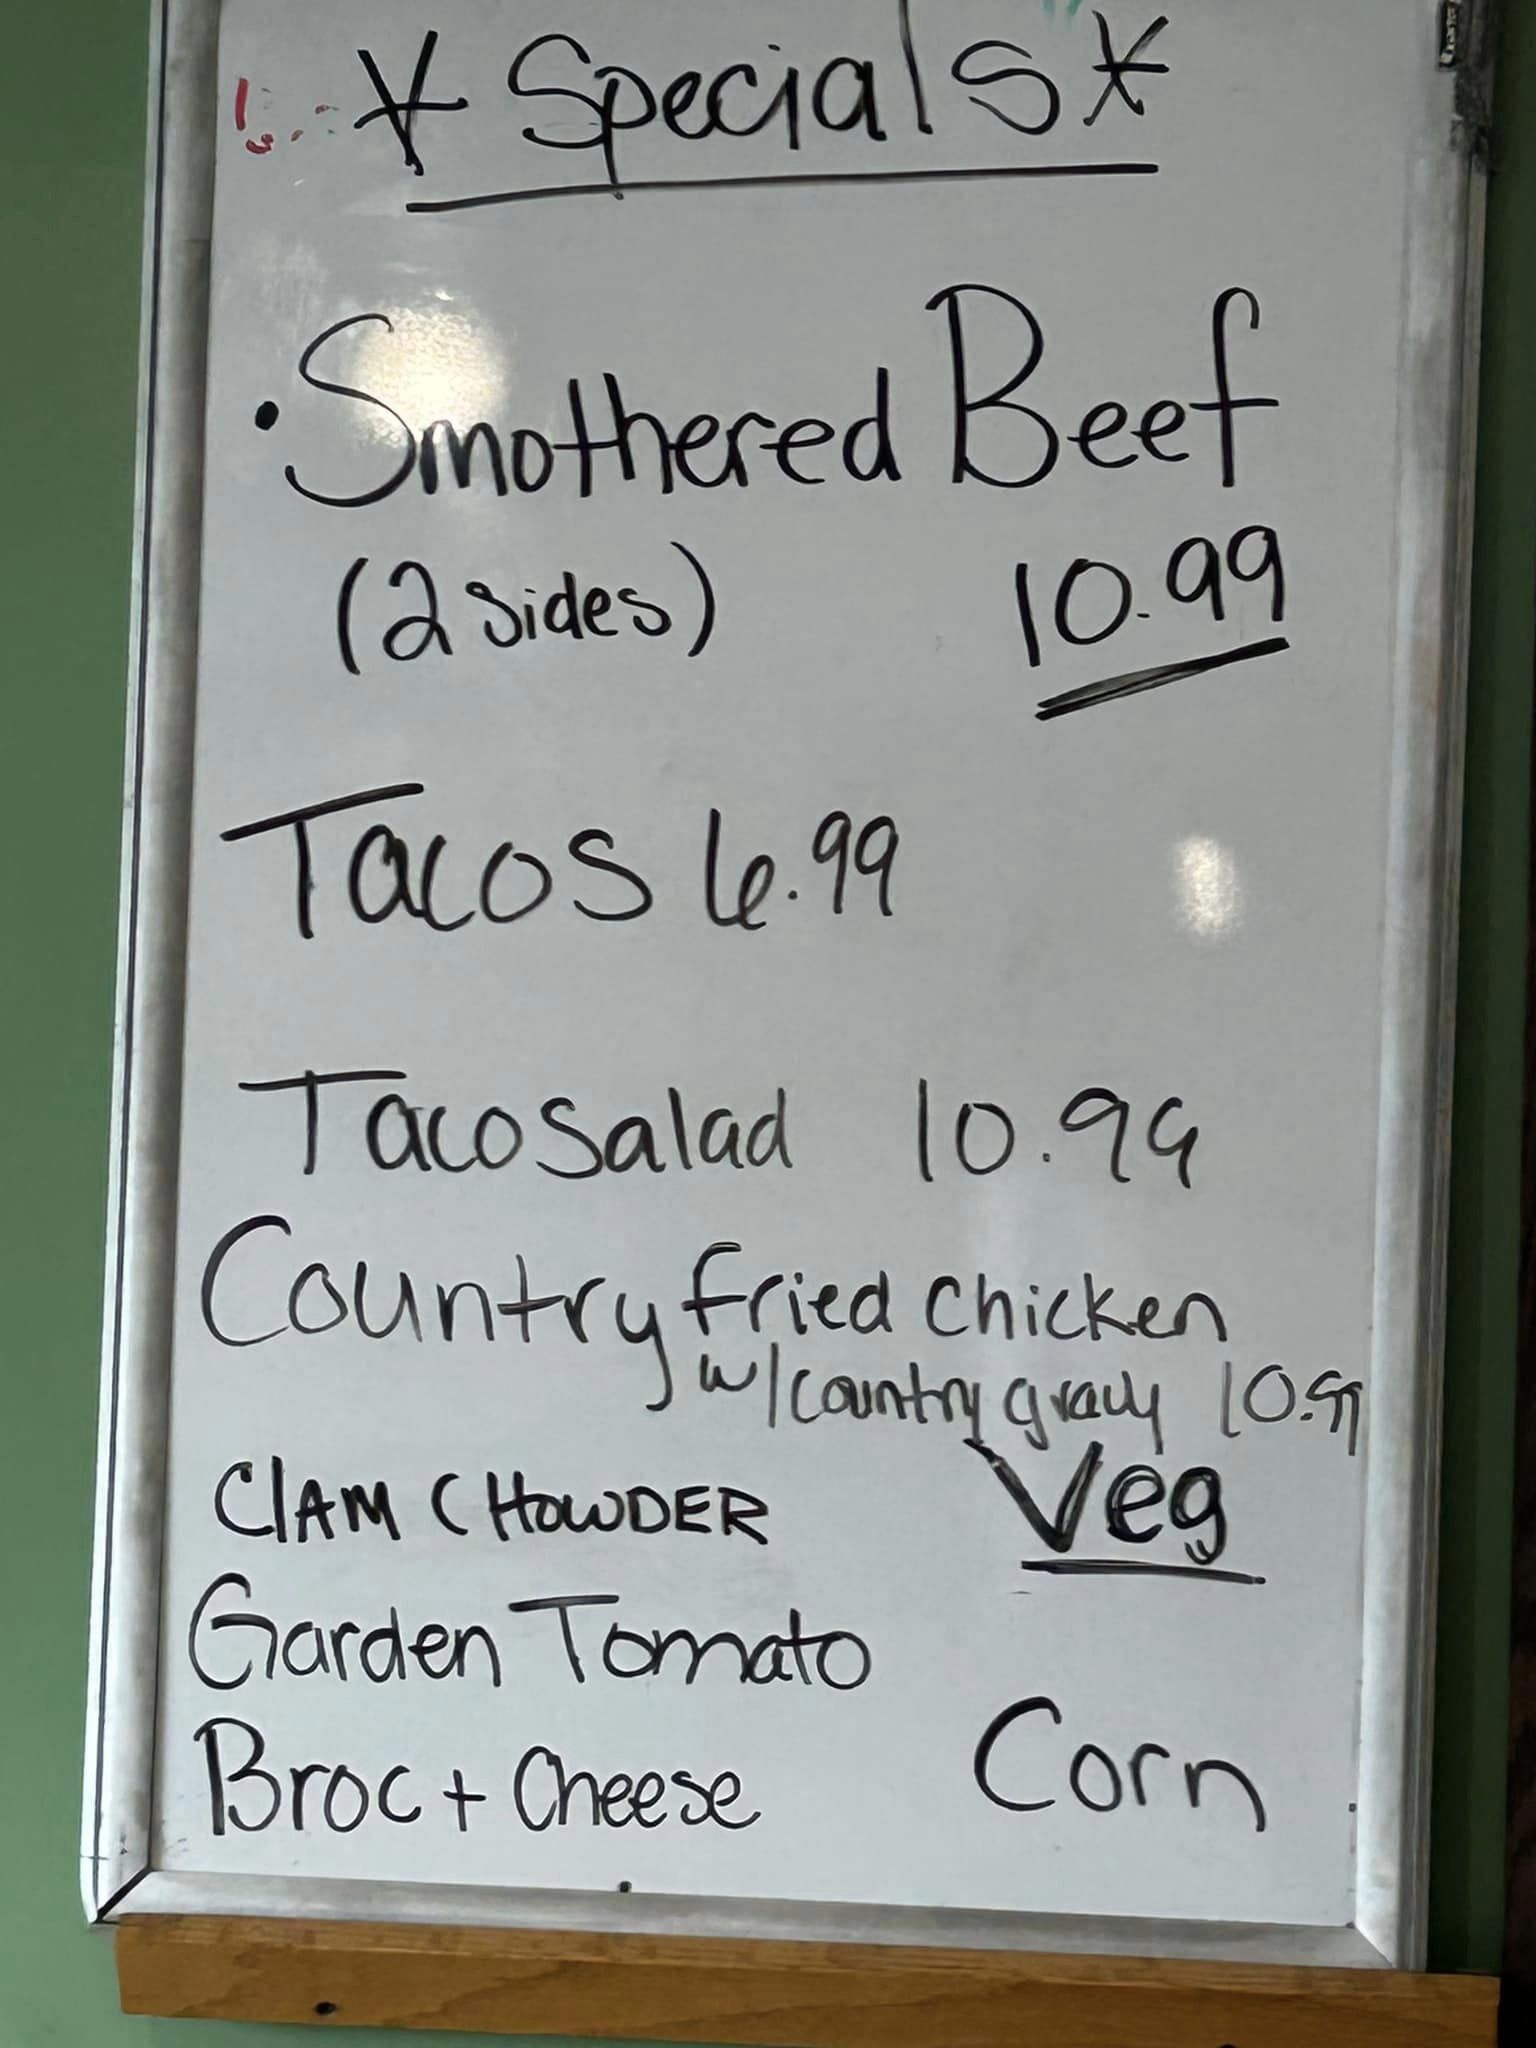 * Specials *
• Smothered Beef
(2 sides) 10.99
Tacos 6.99
Taco Salad 10.99
Country fried chicken
w/country gravy 10.99
ClAM CHOWDER
Veg
Garden Tomato
Broc + Cheese
Corn